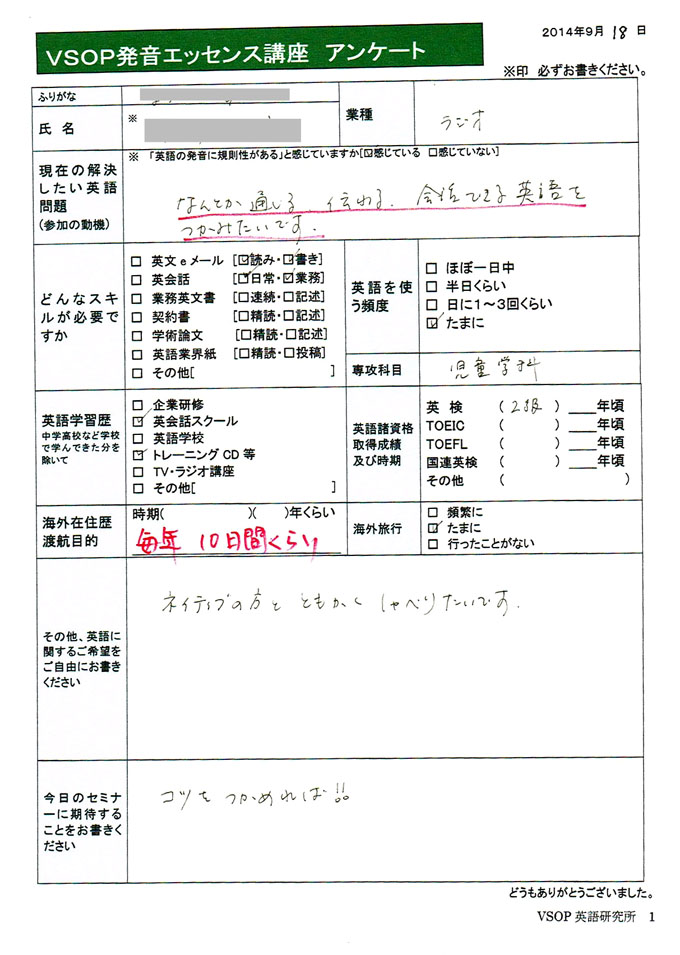 2014年9月 18 日
VSOP発音エッセンス講座 アンケート
※印 必ずお書きください。
ふりがな
氏 名 ※
業種 ラジオ
現在の解決したい英語問題
(参加の動機)
※ 「英語の発音に規則性がある」と感じていますか[☑感じている ☐感じていない]
なんとか通じる、伝わる、会話できる英語を
つかみたいです。
どんなスキルが必要ですか
☐ 英文eメール [☑読み・☑書き]
☐ 英会話 [☑日常・☑業務]
☐ 業務英文書 [☐連続・☐記述]
☐ 契約書 [☐精読・☐記述]
☐ 学術論文 [☐精読・☐記述]
☐ 英語業界紙 [☐精読・☐投稿]
☐ その他[ ]
英語を使う頻度
☐ ほぼ一日中
☐ 半日くらい
☐ 日に1～3回くらい
☑ たまに
専攻科目 児童学科
英語学習歴
中学高校など学校で学んできた分を除いて
☐ 企業研修
☑ 英会話スクール
☐ 英語学校
☑ トレーニングCD等
☐ TV・ラジオ講座
☐ その他[ ]
英語諸資格取得成績及び時期
英 検 ( 2級 ) ____年頃
TOEIC ( ) ____年頃
TOEFL ( ) ____年頃
国連英検 ( ) ____年頃
その他 ( )
海外在住歴
渡航目的
時期( )( )年くらい
毎年 10日間くらい
海外旅行
☐ 頻繁に
☑ たまに
☐ 行ったことがない
その他、英語に関するご希望をご自由にお書きください
ネイティブの方と ともかく しゃべりたいです。
今日のセミナーに期待することをお書きください
コツを つかめれば!!
どうもありがとうございました。
VSOP 英語研究所 1